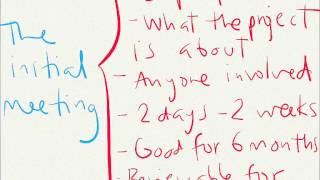 The
initial
meeting
- What the project
is about
- Anyone involved
- 2 days - 2 weeks
- Good for 6 months
- Renewable for